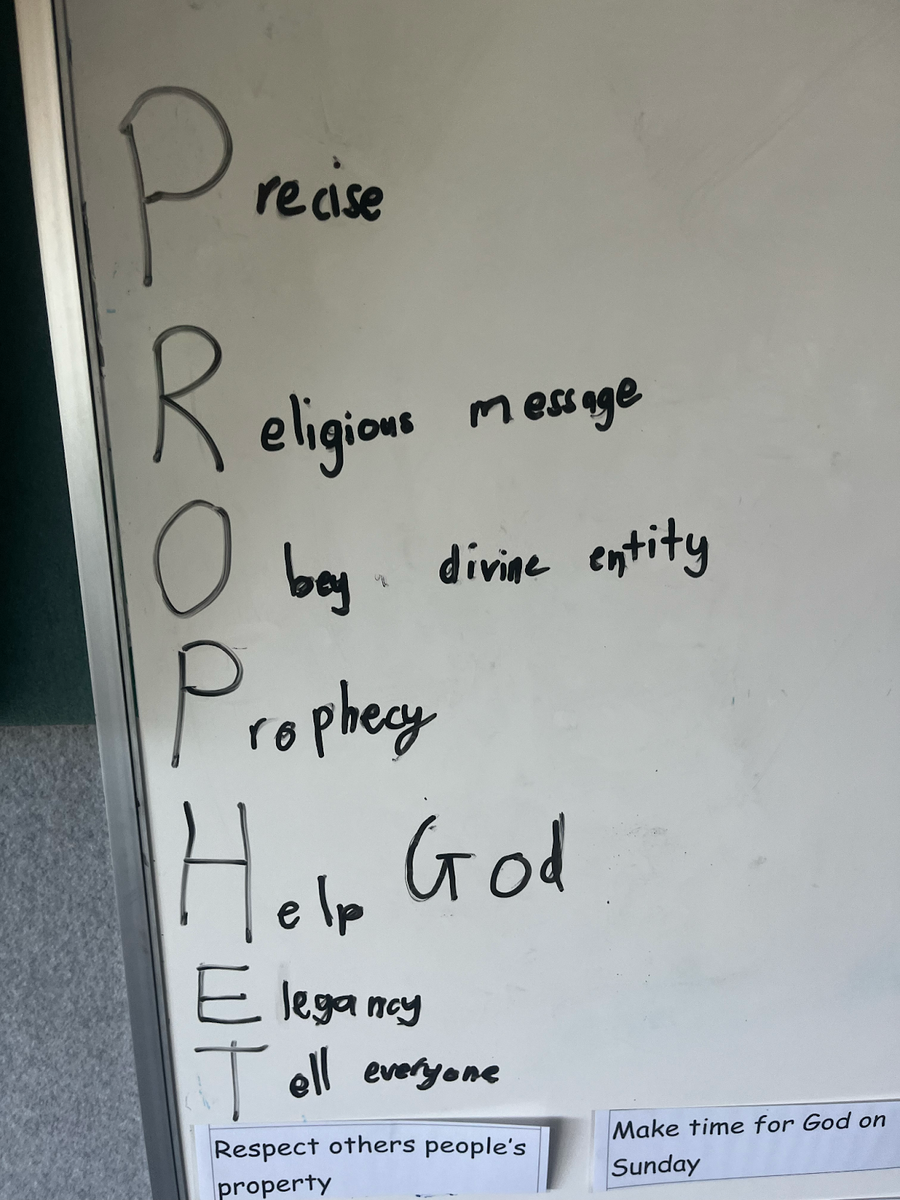 Precise
Religious message
Obey divine entity
Prophecy
Help God
Elegancy
Tell everyone
Respect others people's
property
Make time for God on
Sunday